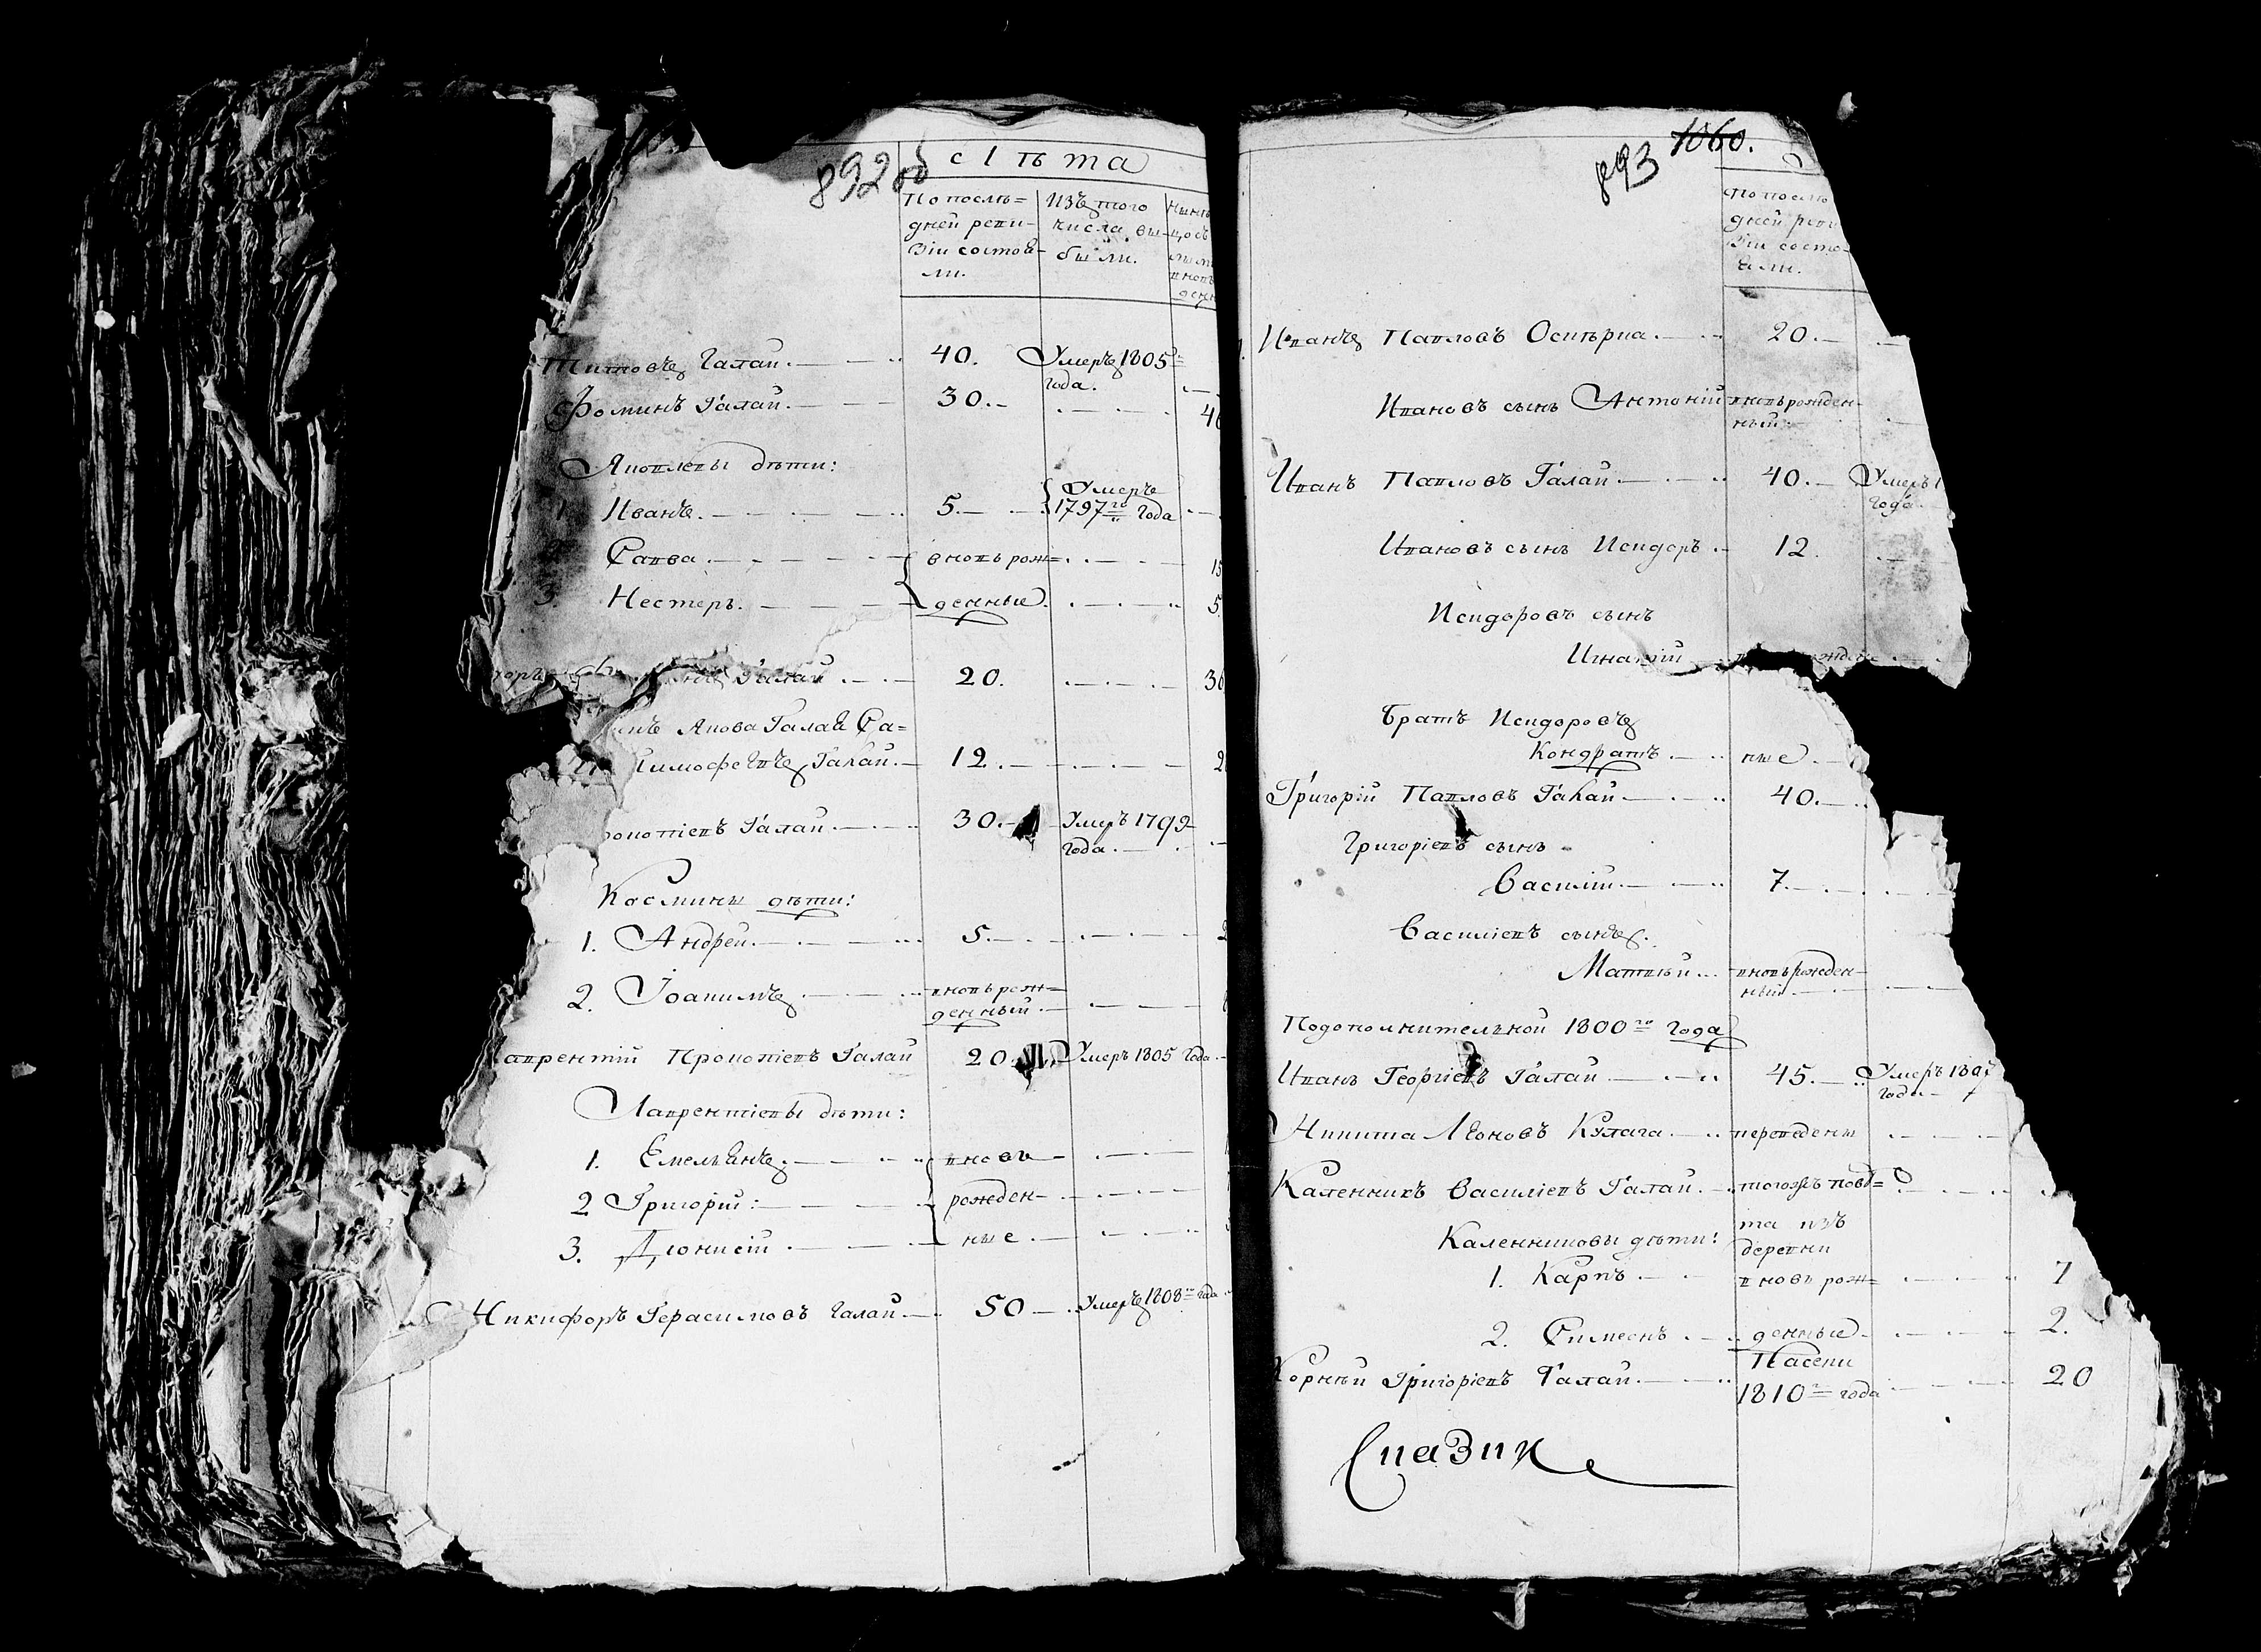 892 об
с 1 ѣ та
По послѣ=
дней реви-
зіи состоя-
ли.
Изъ того
числа вы-
были.
Титовъ Галай. 40. Умеръ 1805
года.
Фоминъ Галай. 30.
Яковлевы дѣти:
1. Иванъ. 5. Умеръ
1797го года
Савва. вновь рож=
3. Нестеръ. денные. 5.
Галай 20. 30
Якова Галая Са=
Тимофеевъ Галай. 12.
Прокопіевъ Галай. 30. Умеръ 1799
года.
Космины дѣти:
1. Андрей. 5.
2. Іоакимъ. вновь рож=
денный.
Лаврентій Прокопіевъ Галай 20. Умеръ 1805 года.
Лаврентіевы дѣти:
1. Емельянъ. вновь
2 Григорій: рожден-
3. Діонисій ные.
Никифоръ Герасимовъ Галай 50 Умеръ 1808го года
893 1060.
По послѣ
дней реви
зіи состо-
яли.
Иванъ Павловъ Осперна. 20.
Ивановъ сынъ Антоній вновь рожден-
ный
Иванъ Павловъ Галай 40. Умеръ 1
года
Ивановъ сынъ Исидоръ 12.
Исидоровъ сынъ
Игнатій
Братъ Исидоровъ
Кондратъ ные.
Григорій Павловъ Галай 40.
Григоріевъ сынъ
Василій. 7.
Василіевъ сынъ.
Матвѣй вновь рожден-
ный
По дополнительной 1800го года
Иванъ Георгіевъ Галай 45. Умеръ 1807
года
Никита Леоновъ Кулага. переведены
Каленникъ Василіевъ Галай. того жъ повѣ=
та изъ
Каленниковы дѣти: деревни
1. Карпъ вновь рож= 7
2. Симеонъ денные 2.
Пасеки
Корнѣй Григоріевъ Галай. 1810го года 20
Сказки